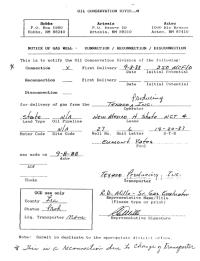 OIL CONSERVATION DIVISION
Hobbs Artesia Aztec
P.O. Box 1980 P.O. Drawer DD 1000 Rio Brazos
Hobbs, NM 88240 Artesia, NM 88210 Aztec, NM 87410
NOTICE OF GAS WELL - CONNECTION / RECONNECTION / DISCONNECTION
This is to notify the Oil Conservation Division of the following:
Connection X First Delivery 9-8-88 250 MCF/D
Date Initial Potential
Reconnection First Delivery
Date Initial Potential
Disconnection
Producing
for delivery of gas from the Texaco Inc.
Operator
State N/A New Mexico H State NCT 4
Land Type Oil Pipeline Lease
N/A 27 L
Meter Code Site Code Well No. Unit Letter S-T-R
Eumont Yates
Pool
was made on 9-8-88
date
AOF
Choke
Texaco Producing, Inc.
Transporter
OCD use only
County Lea
Representative Name/Title
(Please type or print)
Status
Liq. Transporter
Representative Signature
Note: Submit in duplicate to the appropriate district office.
* This is a Reconnection due to Change of Transporter